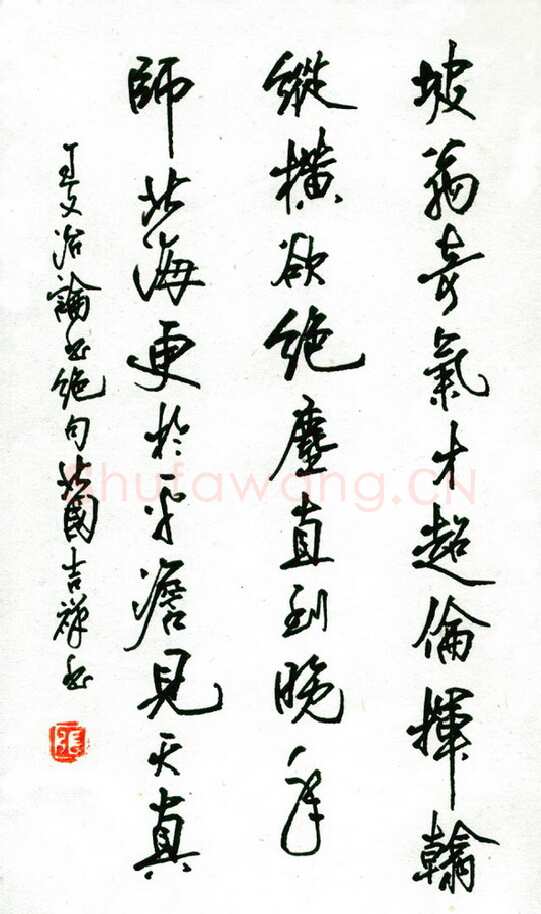 坡翁奇氣才超倫揮翰
縱橫欲絶塵直到晚年
師北海更於平澹見天真
王文治論書絶句北國吉祥書
張
Shufawang.CN